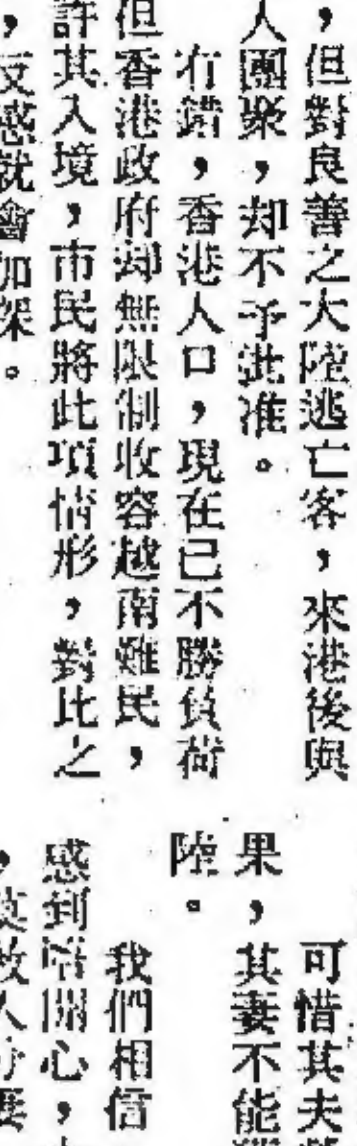 ，但對良善之大陸逃亡客，來港後與
人團聚，却不予批准。
冇錯，香港人口，現在已不勝負荷
但香港政府却無限制收容越南難民，
許其入境，市民將此項情形，對比之
，反感就會加深。
可惜其夫
果，其妻不能
陸。
我們相信
感到唔開心，